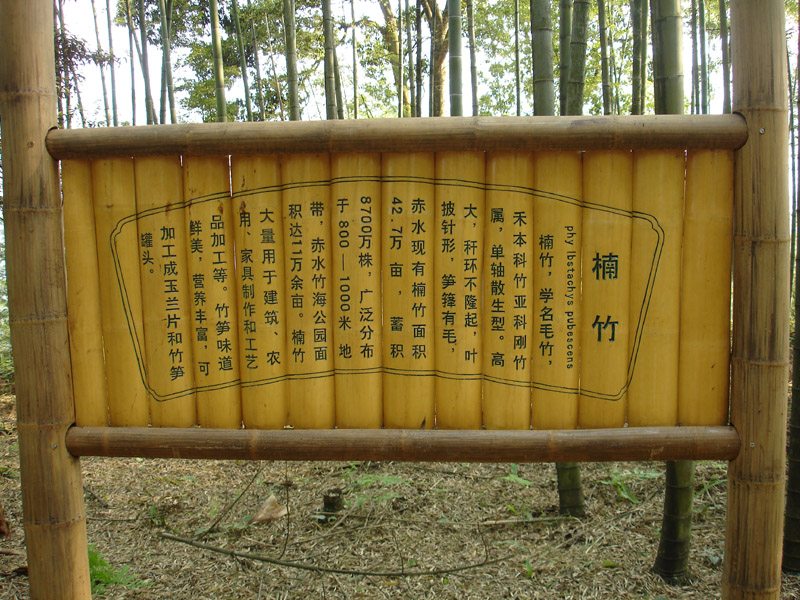 楠竹
phy lbstachys pubescens
楠竹，学名毛竹，
禾本科竹亚科刚竹
属，单轴散生型。高
大，秆环不隆起，叶
披针形，笋箨有毛，
赤水现有楠竹面积
42.7万亩，蓄积
8700万株，广泛分布
于800—1000米地
带，赤水竹海公园面
积达11万余亩。楠竹
大量用于建筑、农
用、家具制作和工艺
品加工等。竹笋味道
鲜美，营养丰富，可
加工成玉兰片和竹笋
罐头。